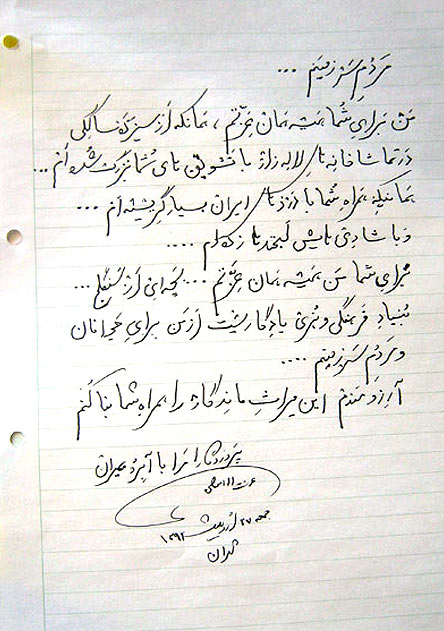 مَردُمِ سَرزمینَم ...
مَن بَرایِ شُما همیشه همان عِزّتَم ، همانکه اَز سیزده سالگی
دَر تماشاخانه های لاله زار با تشویق های شُما بُزرگ شُده اَم ...
همانیکه همراهِ شُما با دَردهای ایران بسیار گریسته اَم ...
وَ با شادی هایش لَبخند ها زده ام ....
بَرایِ شما مَن همیشه همان عِزّتَم ... بَچه ای اَز سَنگلج ...
بُنیادِ فَرهنگی و هُنری یادِگاریست اَز مَن برایِ جَوانان
و مَردُم سَرزمینم ....
آرِزو مَندَم این میراثِ ماندِگار را همراهِ شُما بَنا کُنم
پَروردِگارا مَرا با آبِرو بمیران
عزت الله انتظامی
جمعه ۲۷ اُردیبهشت ۱۳۹۲
تهران